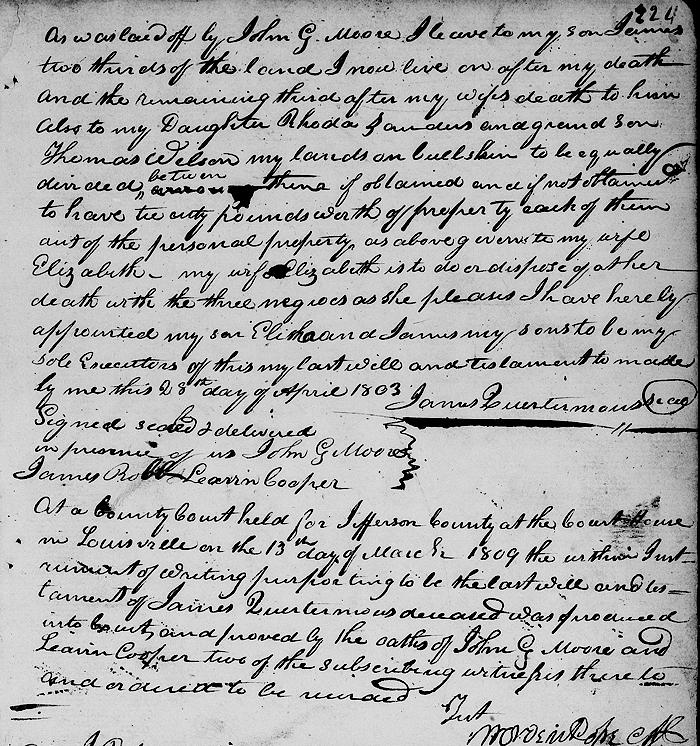 224
As was laid off by John G Moore I leave to my son James
two thirds of the land I now live on after my death
and the remaining third after my wifes death to him
also to my Daughter Rhoda Sanders and grand son
Thomas Welson my lands on bullskin to be equally
divided between them if obtained and if not obtained
to have twenty pounds worth of property each of them
out of the personal property, as above given to my wife
Elizabeth - my wife Elizabeth is to do or dispose of at her
death with the three negroes as she pleases I have hereby
appointed my son Elisha and James my sons to be my
sole Executors of this my last will and testament to made
by me this 28th day of April 1803
James Quertermous seal
Signed sealed & delivered
in presence of us John G Moore
James Learin Cooper
At a County Court held for Jefferson County at the Court House
in Louisville on the 13th day of March 1809 the within Inst-
rument of writing purporting to be the last will and tes-
tament of James Quertermous deceased was produced
into Court, and proved by the oaths of John G Moore and
Learin Cooper two of the subscribing witnesses thereto
and ordered to be recorded
Test
Worden Pope